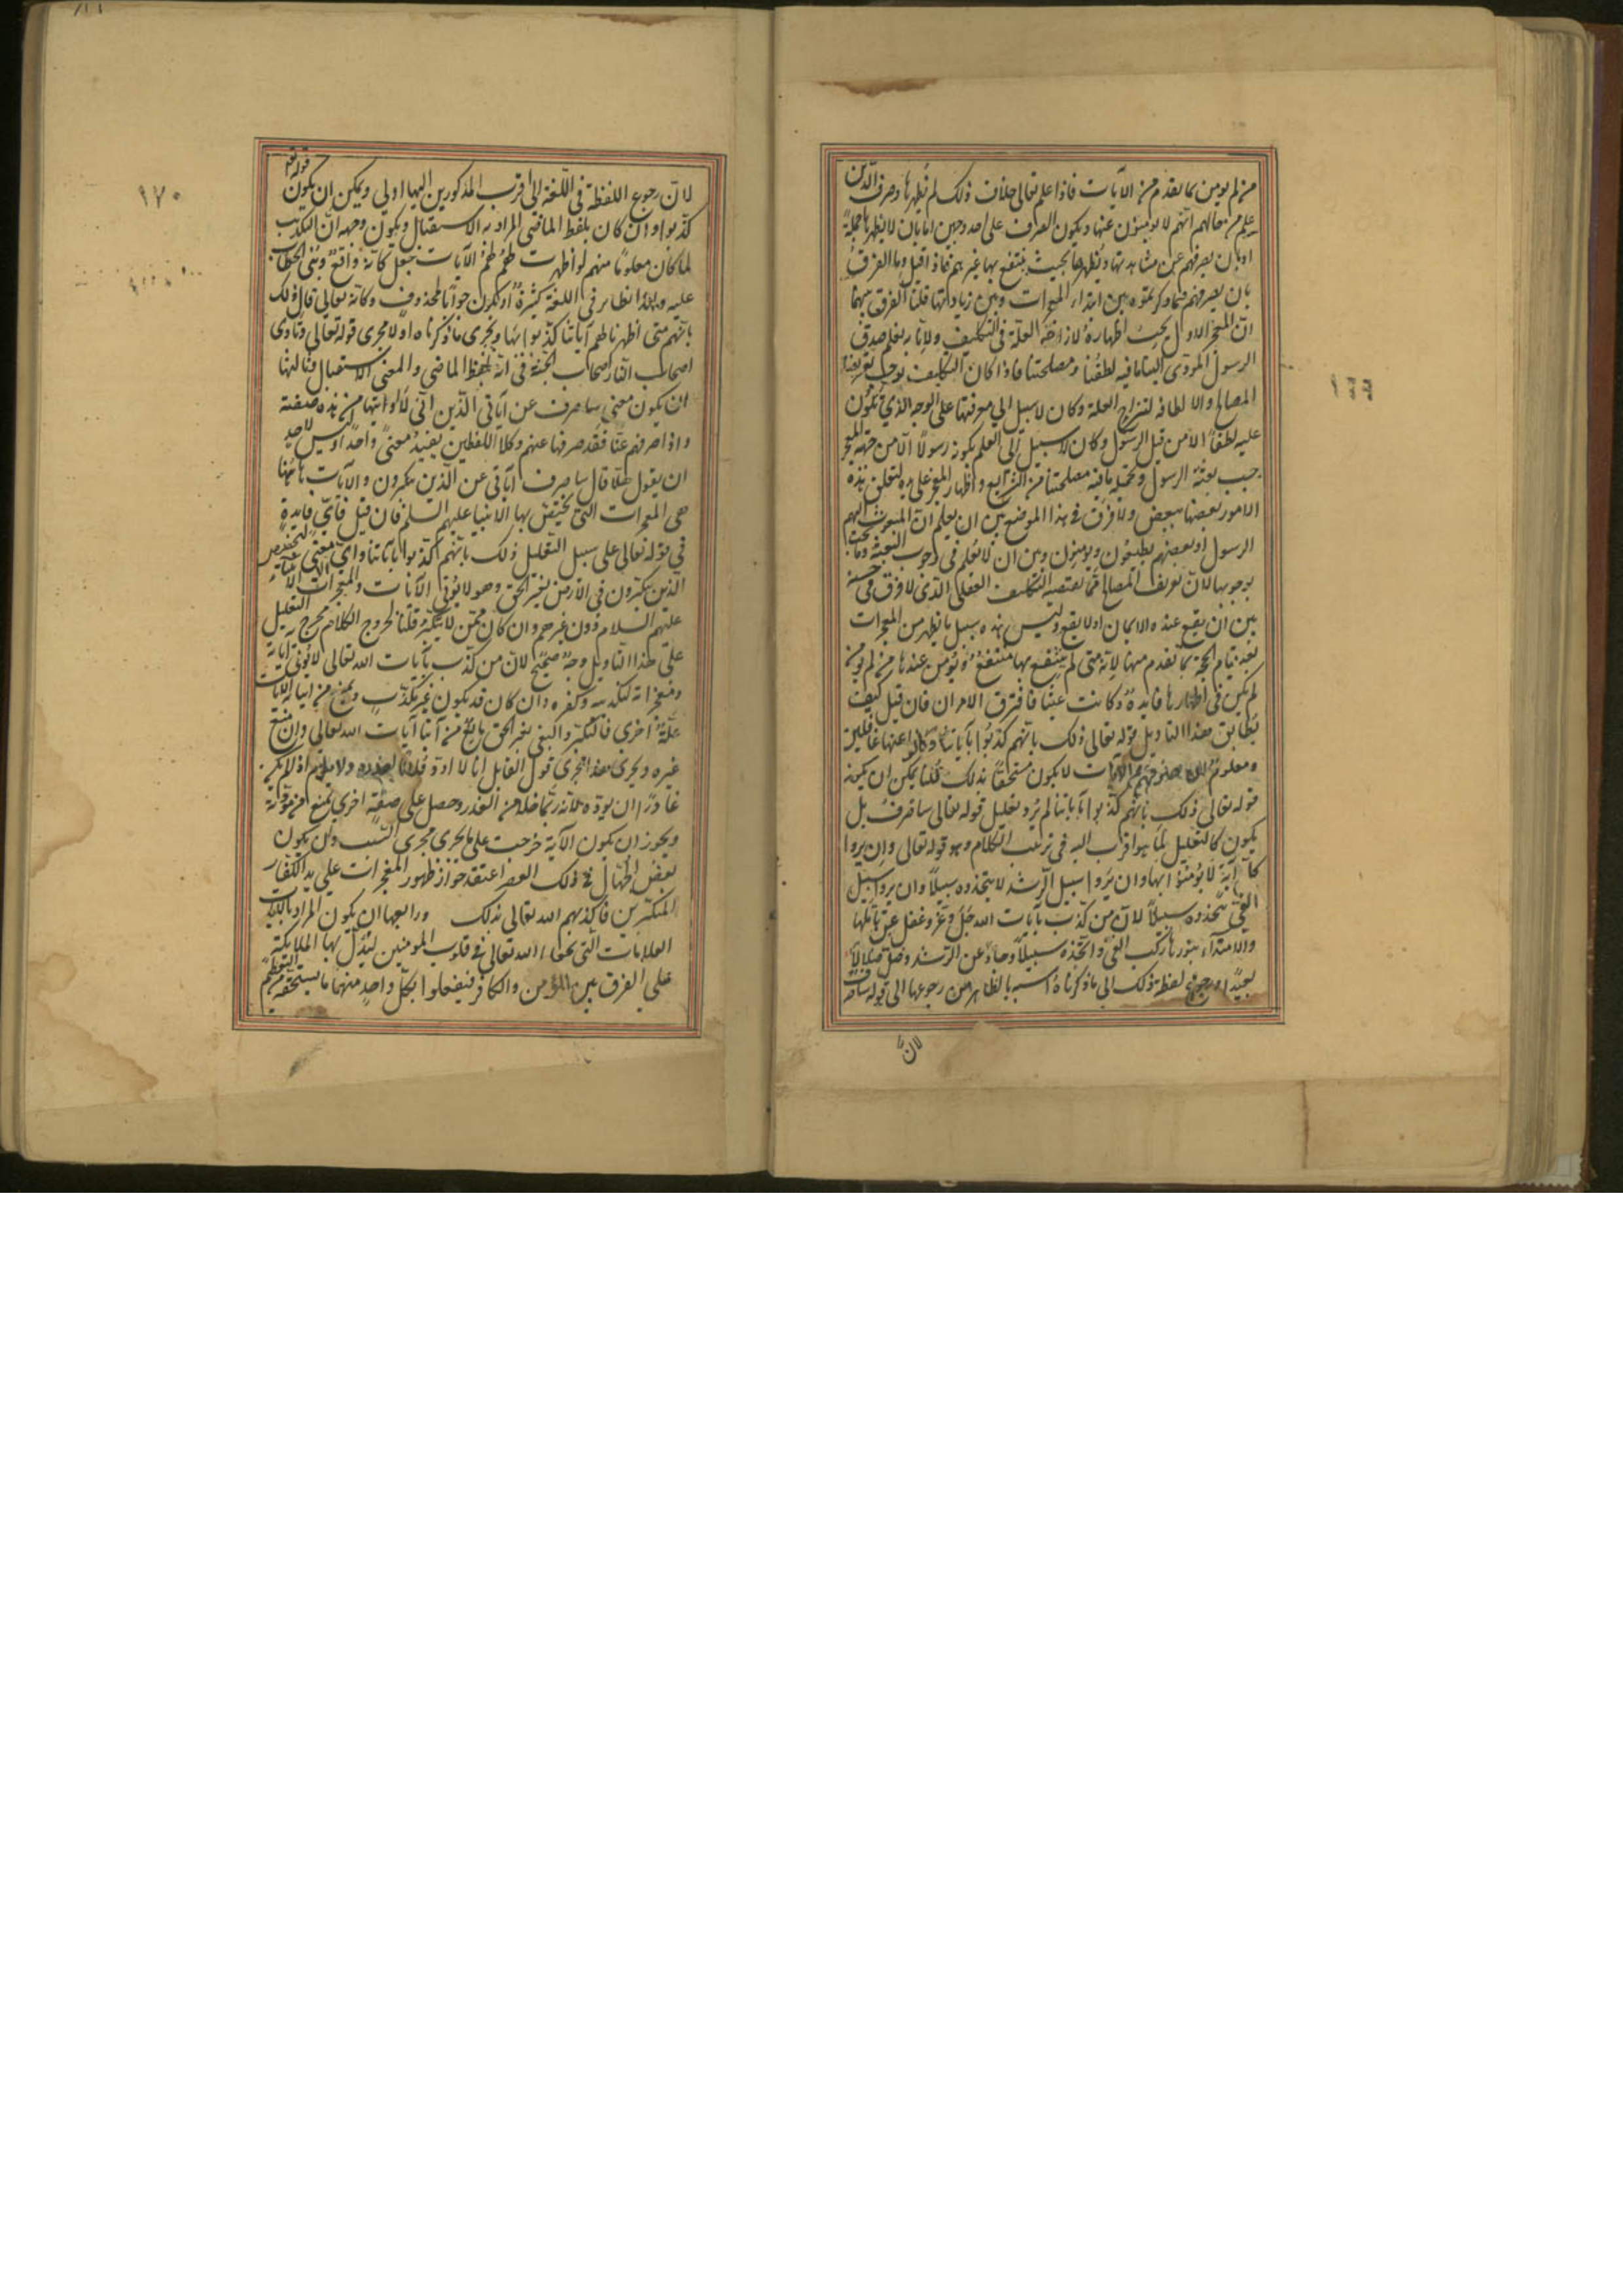 من لم يومن بما تقدم من الايات فاذا علم تعالى خلاف ذلك لم يظهرها وصرف الذين
علم من حالهم انهم لا يومنون عنها ويكون الصرف على احد وجهين اما بان لا يظهرها جملة
او بان يصرفهم عن مشاهدتها ويظهرها بحيث ينتفع بها غيرهم فاذا قيل وما الفرق
بين ابتداء المعجزات وبين زيادتها قلنا الفرق بينهما
ان المعجز الاول يجب اظهاره لازاحة العلة في التكليف ولانا به نعلم صدق
الرسول المودى الينا ما فيه لطفنا ومصلحتنا فاذا كان التكليف يوجب تعريفنا
المصالح والالطاف لتنزاح العلة وكان لا سبيل الى معرفتها على الوجه الذي يكون
عليه لطفا الا من قبل الرسول وكان لا سبيل الى العلم بكونه رسولا الا من جهة المعجز
وجب بعثة الرسول وتحمله ما فيه مصلحتنا من الشرايع واظهار المعجز على يده لتعلق هذه
الامور بعضها ببعض ولا فرق في هذا الموضع بين ان يعلم ان المبعوث اليهم
الرسول او بعضهم يطيعون ويومنون وبين ان لا يعلم في وجوب البعثة وما يجب
بوجوبها لان تعريف المصالح مما يقتضيه التكليف العقلى الذى لا فرق في حسنه
بين ان يقع عنده الايمان او لا يقع وليس هذه سبيل ما يظهر من المعجزات
بعد قيام الحجة بما تقدم منها لانه متى لم ينتفع بها منتفع ويومن عندها من لم يومن
لم يكن في اظهارها فايدة وكانت عبثا فافترق الامران فان قيل كيف
يطابق هذا التاويل قوله تعالى ذلك بانهم كذبوا باياتنا وكانوا عنها غافلين
ومعلوم ان صرفهم الايات لا يكون مستحقا بذلك قلنا يمكن ان يكون
قوله تعالى ذلك بانهم كذبوا باياتنا لم يرد تعليل قوله تعالى ساصرف بل
يكون كالتعليل لما هو اقرب اليه في ترتيب الكلام وهو قوله تعالى وان يروا
كل آية لا يؤمنوا بها وان يروا سبيل الرشد لا يتخذوه سبيلا وان يروا سبيل
الغي يتخذوه سبيلا لان من كذب بايات الله جل وعز وغفل عن تاملها
والاهتداء بنورها ركب الغي واتخذه سبيلا وحاد عن الرشد وضل ضلالا
بعيدا ورجوع لفظة ذلك الى ما ذكرناه اشبه بالظاهر من رجوعها الى قوله ساصرف
لان
١٧٠
لان رجوع اللفظة في اللغة الى اقرب المذكورين اليها اولى ويمكن ان يكون قوله تع
كذبوا وان كان بلفظ الماضي المراد به الاستقبال ويكون وجهه ان التكذيب
لما كان معلوما منهم لو اظهرت لهم الآيات جعل كانه واقع وبنى الخطاب
عليه ولهذا نظاير في اللغة كثيرة او يكون جوابا لمحذوف وكانه تعالى قال ذلك
بانهم متى اظهرنا لهم آياتنا كذبوا بها ويجرى ما ذكرناه اولا مجرى قوله تعالى ونادى
اصحاب النار اصحاب الجنة في انه بلفظ الماضي والمعنى الاستقبال وثالثها
ان يكون معنى ساصرف عن آياتي الذين اني لا اوتيها من هذه صفته
واذا صرفهم عنها فقد صرفها عنهم وكلا اللفظين يفيد معنى واحدا وليس لاحد
ان يقول هلا قال ساصرف آياتي عن الذين يتكبرون والآيات هاهنا
هي المعجزات التي يختص بها الانبيا عليهم السلم فان قيل فاي فايدة
في قوله تعالى على سبيل التعليل ذلك بانهم كذبوا باياتنا واي معنى لتخصيص
الذين يتكبرون في الارض بغير الحق وهو لا يؤتى الآيات والمعجزات الا الانبياء
عليهم السلام دون غيرهم وان كان ممن لا يتكبر قلنا لخروج الكلام مخرج التعليل
على هذا التاويل وجه صحيح لان من كذب بآيات الله تعالى لا يؤتى آياته
ومعجزاته لتكذيبه وكفره وان كان قد يكون غير مكذب ويمنع من ايتائه الآيات
علة اخرى فالتكبر والبغي بغير الحق مانع من آيتا آيات الله تعالى وان منع
غيره ويجرى هذا مجرى قول القايل انا لا اود فلانا لغدره ولا يلزم اذا لم يكن
غادرا ان يوده لانه ربما خلا من الغدر وحصل على صفة اخرى تمنع من مودته
ويجوز ان يكون الآية خرجت على ما يجرى مجرى السبب وان يكون
بعض الجهال في ذلك العصر اعتقد جواز ظهور المعجزات على يد الكفار
المتكبرين فاكذبهم الله تعالى بذلك ورابعها ان يكون المراد بالآيات
العلامات التي يجعلها الله تعالى في قلوب المومنين ليدل بها الملايكة
على الفرق بين المؤمن والكافر فيفعلوا بكل واحد منهما ما يستحقه من التعظيم